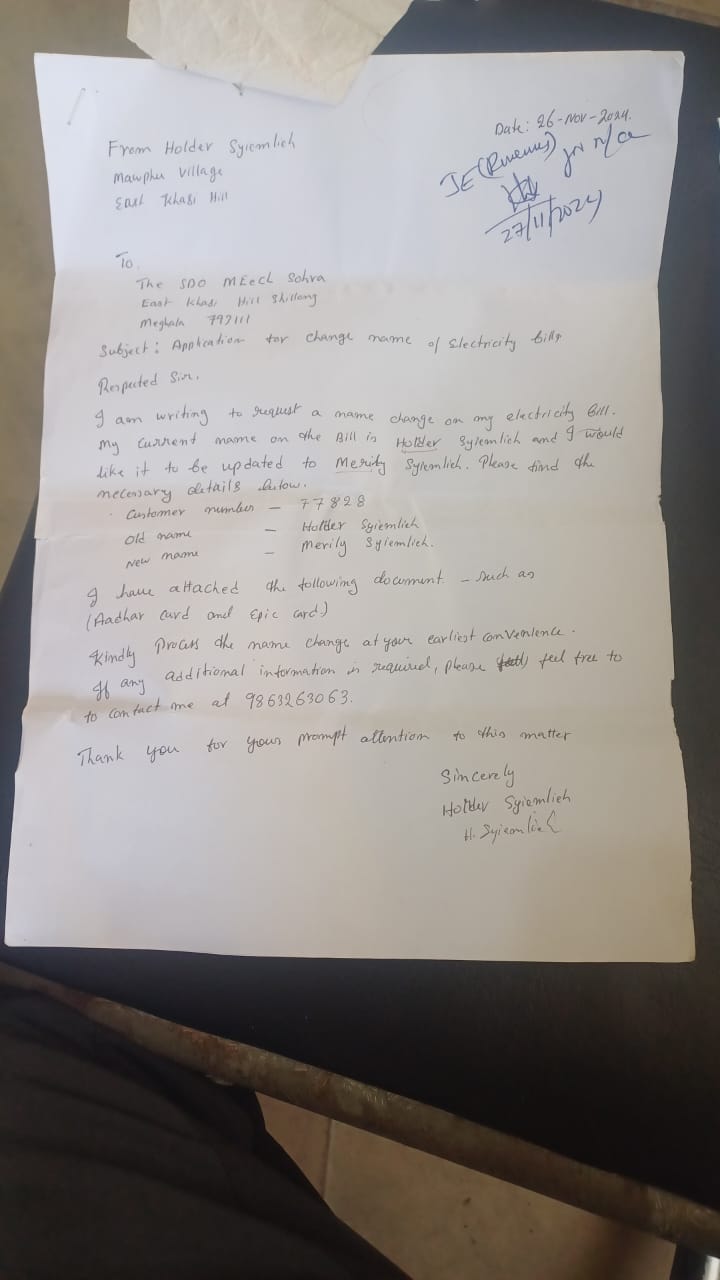 From Holder Syiemlieh
Mawphu Village
East Khasi Hill
Date: 26-Nov-2024.
JE (Revenue) for n/a
27/11/2024
To,
The SDO MEECL Sohra
East Khasi Hill Shillong
Meghala 793111
Subject: Application for change name of Electricity bills
Respected Sir.
I am writing to request a name change on my electricity Bill.
My current name on the Bill is Holder Syiemlieh and I would
like it to be updated to Merily Syiemlieh. Please find the
necessary details below.
Customer number - 77828
Old name - Holder Syiemlieh
New name - Merily Syiemlieh.
I have attached the following document - such as
(Aadhar card and Epic card)
Kindly Process the name change at your earliest convenience.
If any additional information is required, please feel free to
to contact me at 9863263063.
Thank you for your prompt attention to this matter
Sincerely
Holder Syiemlieh
H. Syiemlieh